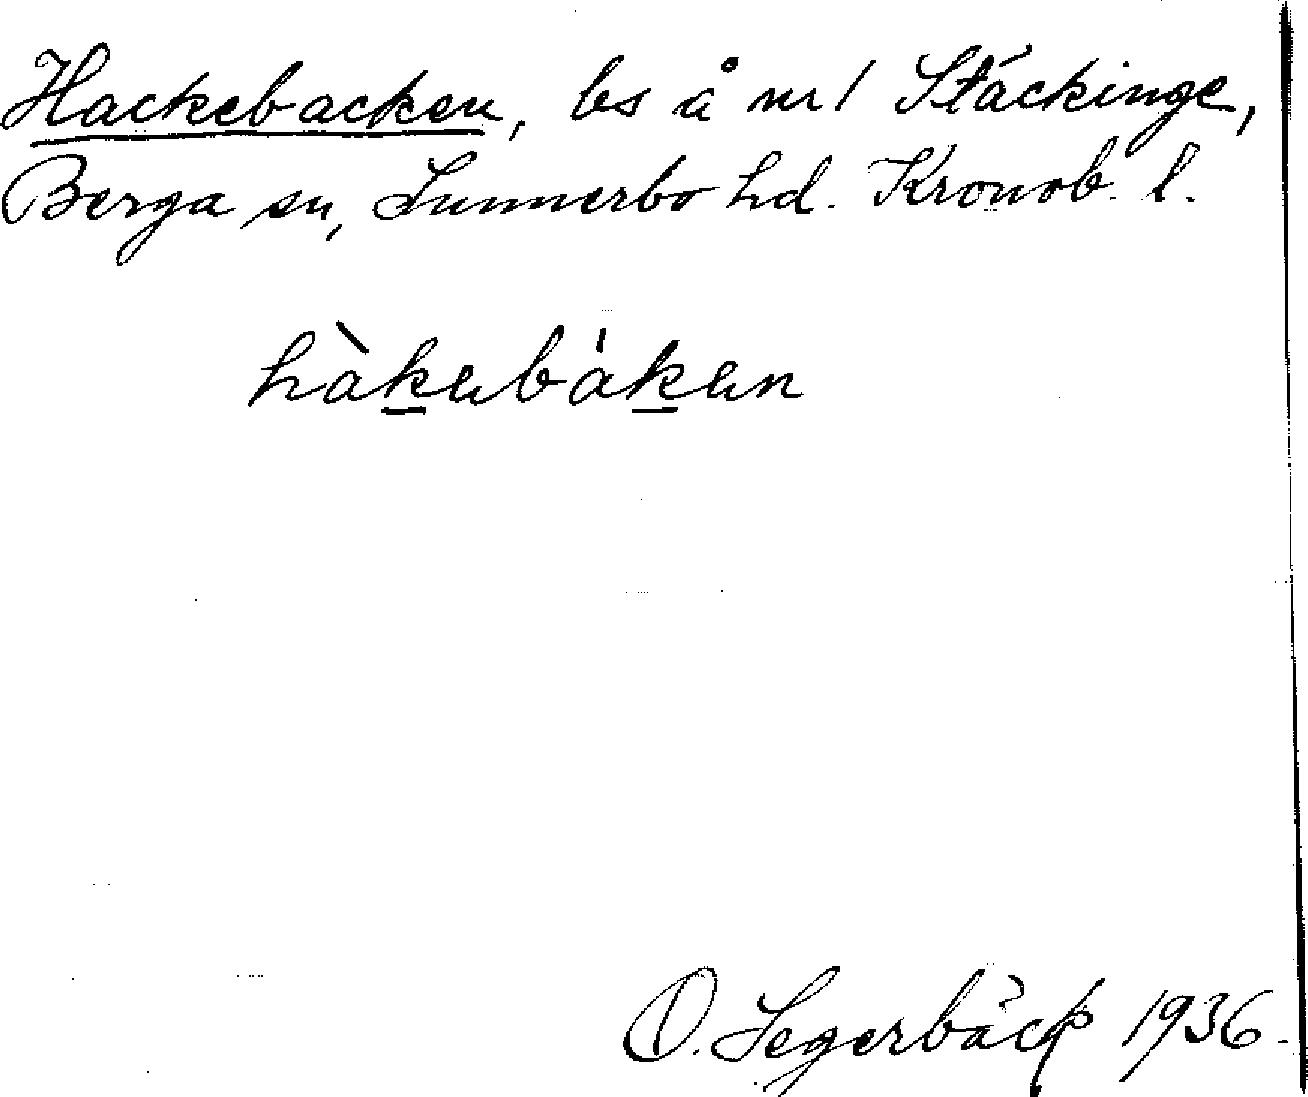 Hackebacken, ls å nr 1 Stäckinge,
Berga sn, Sunnerbo hd. Kronob. l.
hàkebáken
O. Segerbäck 1936.